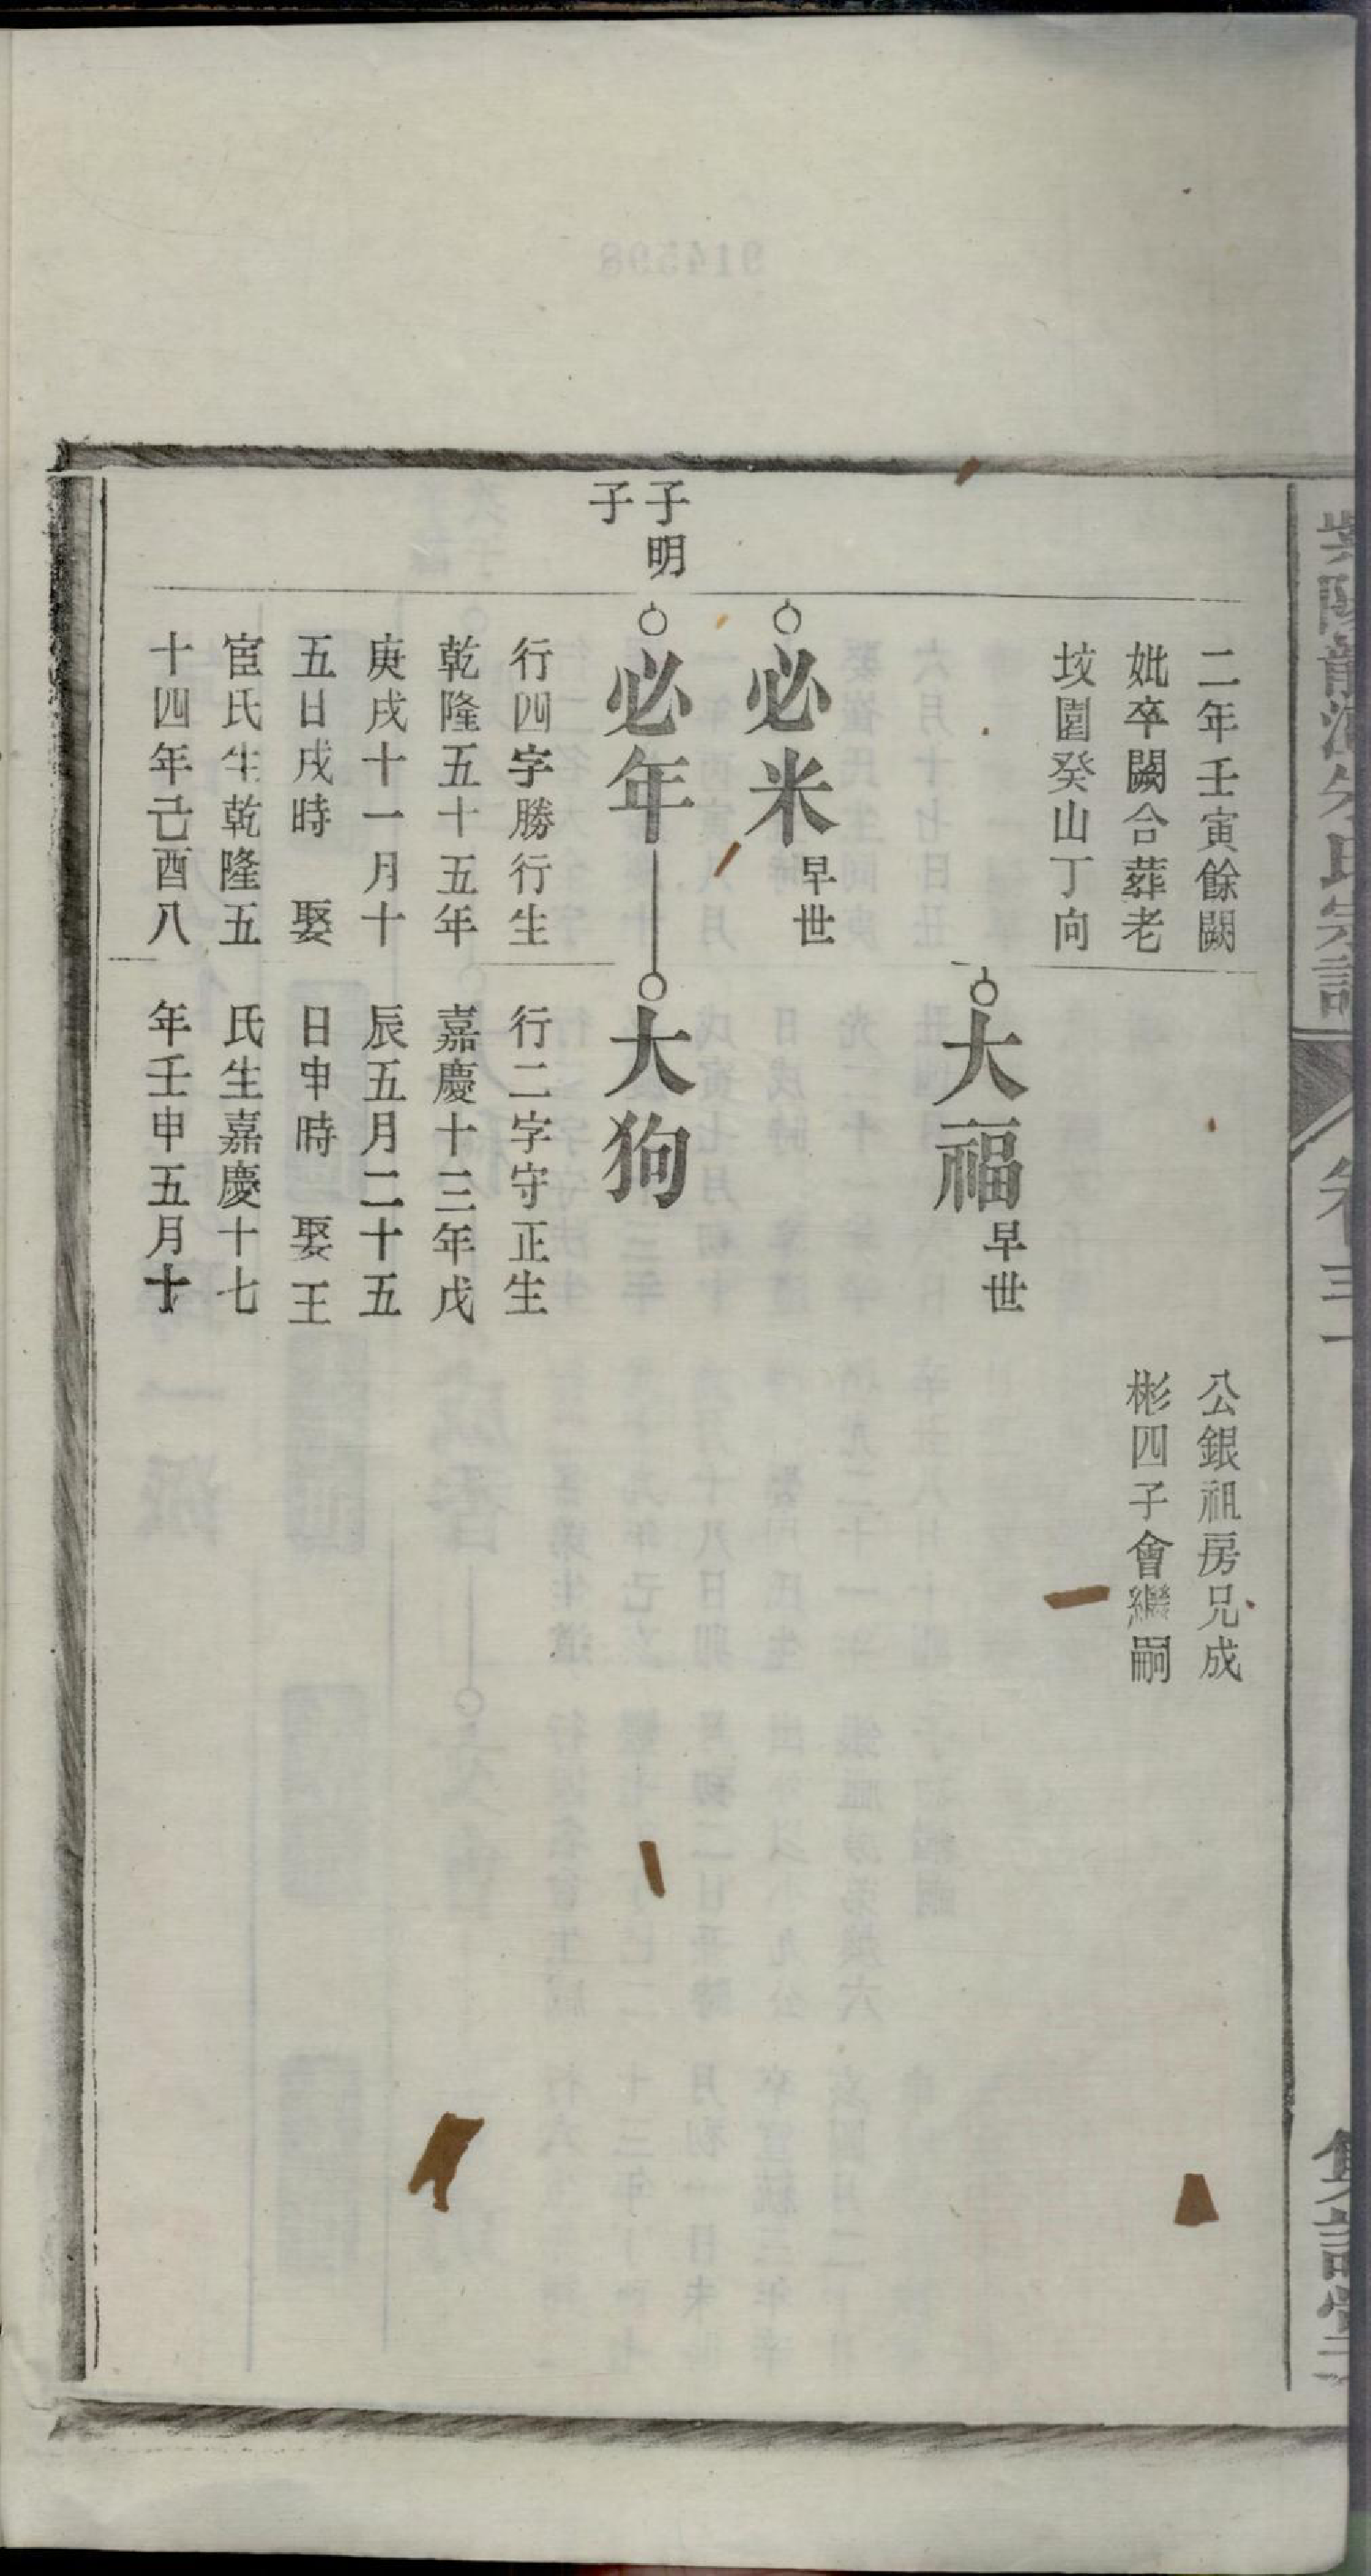 氏宗譜
卷三
二年壬寅餘闕
妣卒闕合葬老
坟園癸山丁向
公銀祖房兄成
彬四子會繼嗣
大福早世
必米早世
子明
子
必年
行四字勝行生
乾隆五十五年
庚戌十一月十
五日戌時 娶
宦氏生乾隆五
十四年己酉八
大狗
行二字守正生
嘉慶十三年戊
辰五月二十五
日申時 娶王
氏生嘉慶十七
年壬申五月十